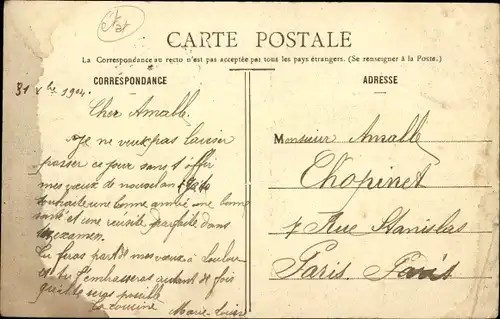 CARTE POSTALE
La Correspondance au recto n'est pas acceptée par tous les pays étrangers. (Se renseigner à la Poste.)
CORRESPONDANCE
ADRESSE
31 Xbre 1904.
Cher Amable.
Je ne veux pas laisser
passer ce jour sans t'offrir
mes vœux de nouvel an
souhaite une bonne année une bonne
santé et une réussite parfaite dans
examen.
Tu feras part de mes vœux à Loulou
et tu l'embrasseras autant de fois
qu'il te sera possible
ta cousine
Marie Louise
Monsieur Amable
Chopinet
7 Rue Stanislas
Paris Paris